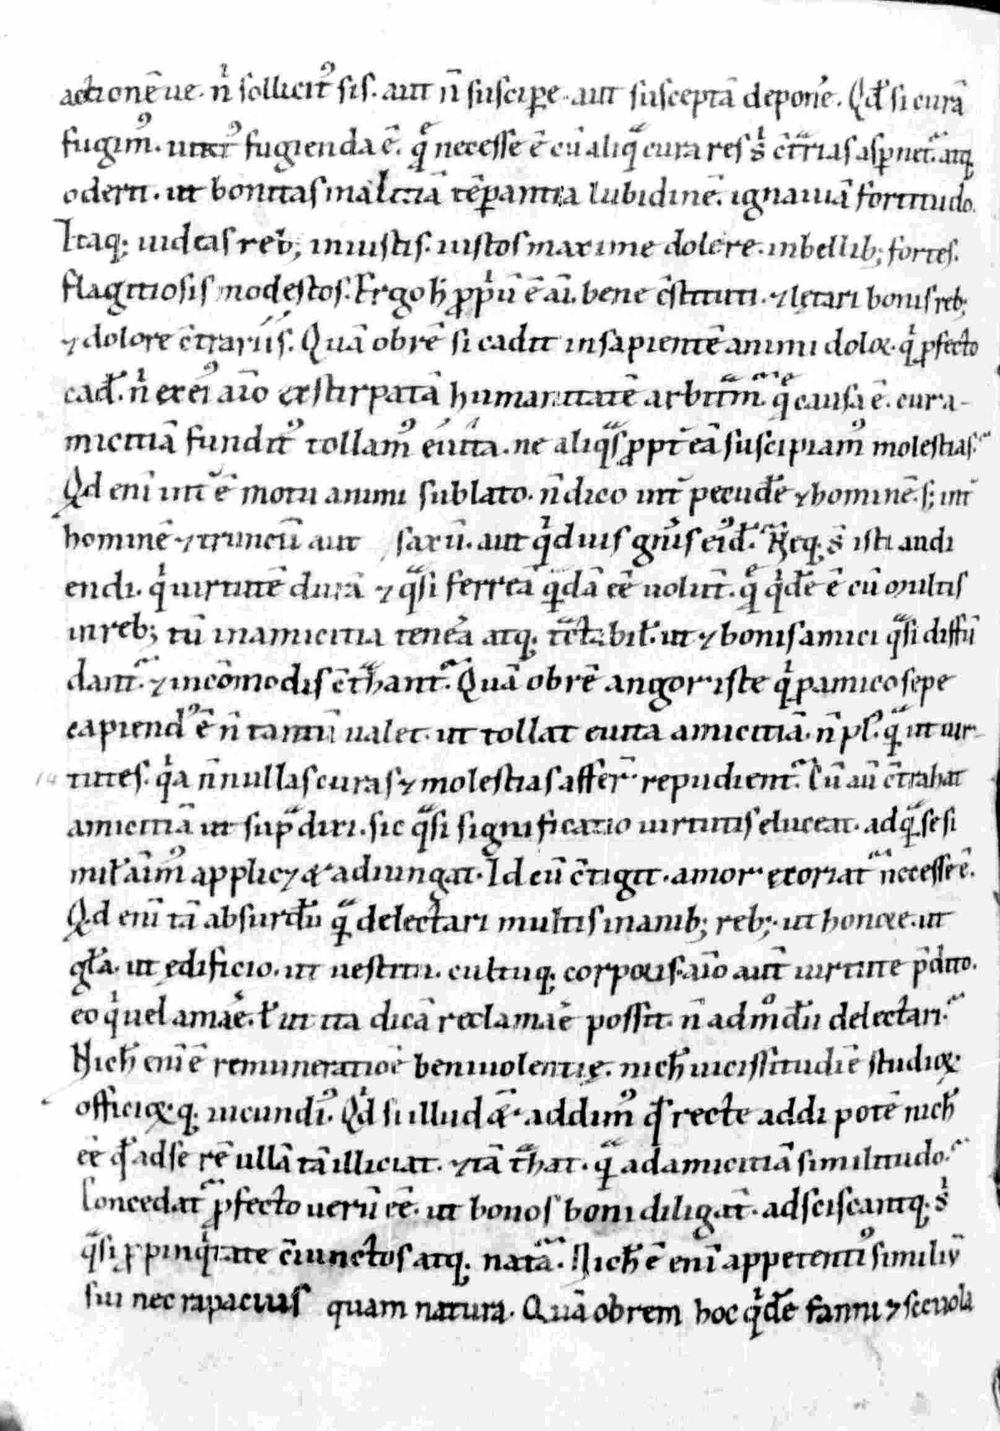 actionēue. n̄ sollicit᷒ sis. aut n̄ suscipe. aut susceptā depone᷒. Qd̄ si curā
fugim᷒. uirt᷒ fugienda ē. q̄ necesse ē cū aliq̄ cura res s᷒ c̄trias asp̄net. atq;
oderit. ut bonitas malitiā tēperantia lubidinē. ignauiā fortitudo.
Itaq; uideas reb; iniustis. iustos maxime dolere. inbellib; fortes.
flagitiosis modestos. Ergo h̄ ꝓpⁱū ē aī. bene c̄stituti. ⁊ lętari bonis reb;
⁊ dolore c̄trariis. Quā obrē si cadit insapientē animi doloꝝ. qⁱ ꝓfecto
cad̄. nⁱ ex ei᷒ aīo exstirpatā humanitatē arbitm̄. q̄ causa ē. cur a-
micitiā fundit᷒ tollam᷒ eūita. ne aliq̄s ꝓpt̄ eā suscipiam᷒ molestias.
Qd enī int̄ ē motu animi sublato. n̄ dico int̄ pecudē ⁊ hominē. s; int̄
hominē ⁊ truncū aut saxū. aut qⁱduis gn̄is ei᷒d̄. Neq; s̄ isti audi
endi. qⁱ uirtutē durā ⁊ q̄si ferreā q̄dā ēē uolunt̄. q̄ qⁱdē ē cū multis
inreb; tū inamicitia tenēa atq; tc̄tabil̄. ut ⁊ bonis amici q̄si diffū
dant̄. ⁊ incōmodis c̄thant̄. Quā obrē angor iste qⁱ ꝓ amico sępe
capiend᷒ ē n̄ tantū ualet. ut tollat euita amicitiā. n̄ pl᷒. q̄ ut uir-
tutes. qⁱa n̄nullas curas ⁊ molestias affer̄ repudient̄. Cū aū c̄trahat
amicitiā ut sup̄ dixi. sic q̄si significatio uirtutis eluceat. adq̄ se si
mil̄ aīm᷒ applicet ⁊ adiungat. Id cū c̄tigit. amor exoriat̄ necesse ē.
Qd enī tā absurdū q̄ delectari multis inanib; reb;. ut honore. ut
gl̄a. ut ędificio. ut uestitu. cultuq; corporis. aīo aut̄ uirtute p̄dito.
eo qⁱ uel amāe. ł ut ita dicā reclamāe possit. n̄ admodū delectari.
Nich̄ enī ē remuneratiōe beniuolentię. nich̄ uicissitudīe studioꝝ.
officioꝝ q; iucundi᷒. Qd̄ si illud &. addim᷒ q̄ recte addi potē nich̄
ēē q̄ adse rē ullā tā illiciat. ⁊ tā th̄at. q̄ adamicitiā similitudo.
Concedat̄ ꝓfecto uerū ēē. ut bonos boni diligāt. adsciscantq; sⁱ
q̄si ꝓpinqⁱtate c̄iunctos atq; natā. Nich̄ ē enī appetenti᷒ similiū
sui nec rapacius quam natura. Quā obrem hoc qⁱdē fanni ⁊ sceuola